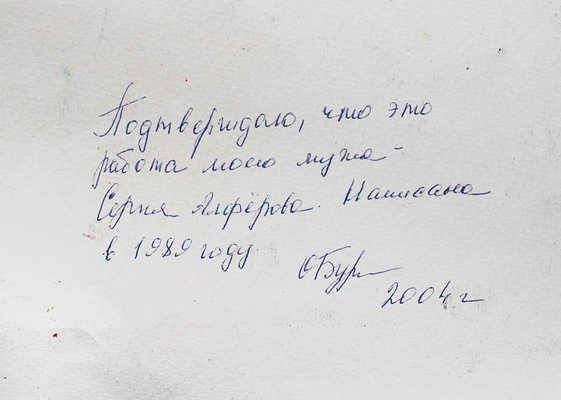 Подтверждаю, что это
работа моего мужа -
Сергея Алфёрова. Написана
в 1989 году.
ОБур
2004 г